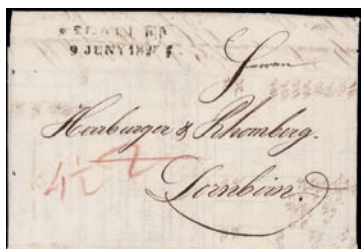 9 JUNY 182
Herrn
Herrburger & Rhomberg.
Dornbirn.
4½